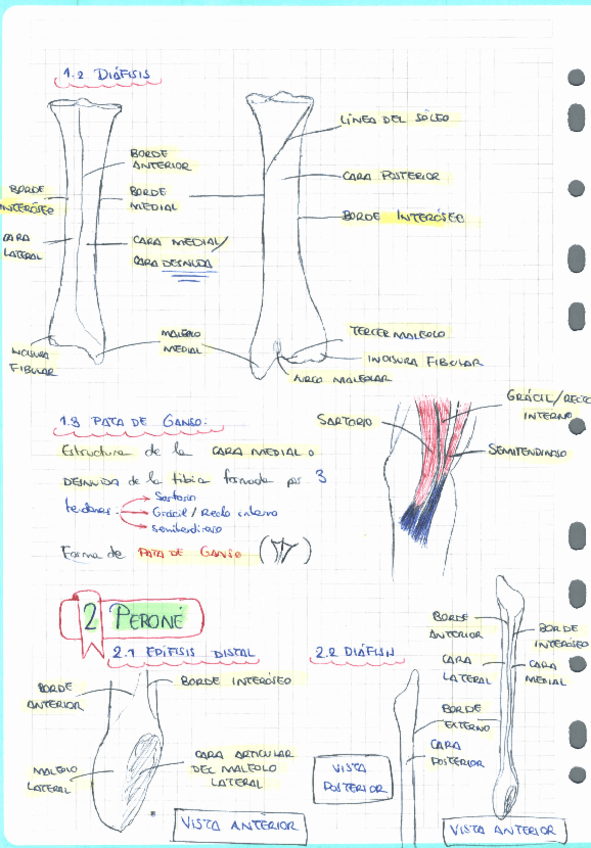 1.2 DIÁFISIS
LÍNEA DEL SÓLEO
BORDE
ANTERIOR
CARA POSTERIOR
BORDE
INTERÓSEO
BORDE
MEDIAL
BORDE INTERÓSEO
CARA
LATERAL
CARA MEDIAL/
CARA DESNUDA
MALEOLO
MEDIAL
TERCER MALEOLO
INCISURA
FIBULAR
INCISURA FIBULAR
MALEOLAR
1.3 PATA DE GANSO:
SARTORIO
GRÁCIL/RECTO
INTERNO
SEMITENDINOSO
Estructura de la CARA MEDIAL o
DESNUDA de la tibia formada por 3
tendones
Sartorio
Grácil / Recto interno
semitendinoso
Forma de PATA DE GANSO ( )
2 PERONÉ
2.1 EPÍFISIS DISTAL
2.2 DIÁFISIS
BORDE
ANTERIOR
BORDE INTERÓSEO
MALEOLO
LATERAL
CARA ARTICULAR
DEL MALEOLO
LATERAL
VISTA ANTERIOR
VISTA
POSTERIOR
BORDE
ANTERIOR
BORDE
INTERÓSEO
CARA
LATERAL
CARA
MEDIAL
BORDE
EXTERNO
CARA
POSTERIOR
VISTA ANTERIOR